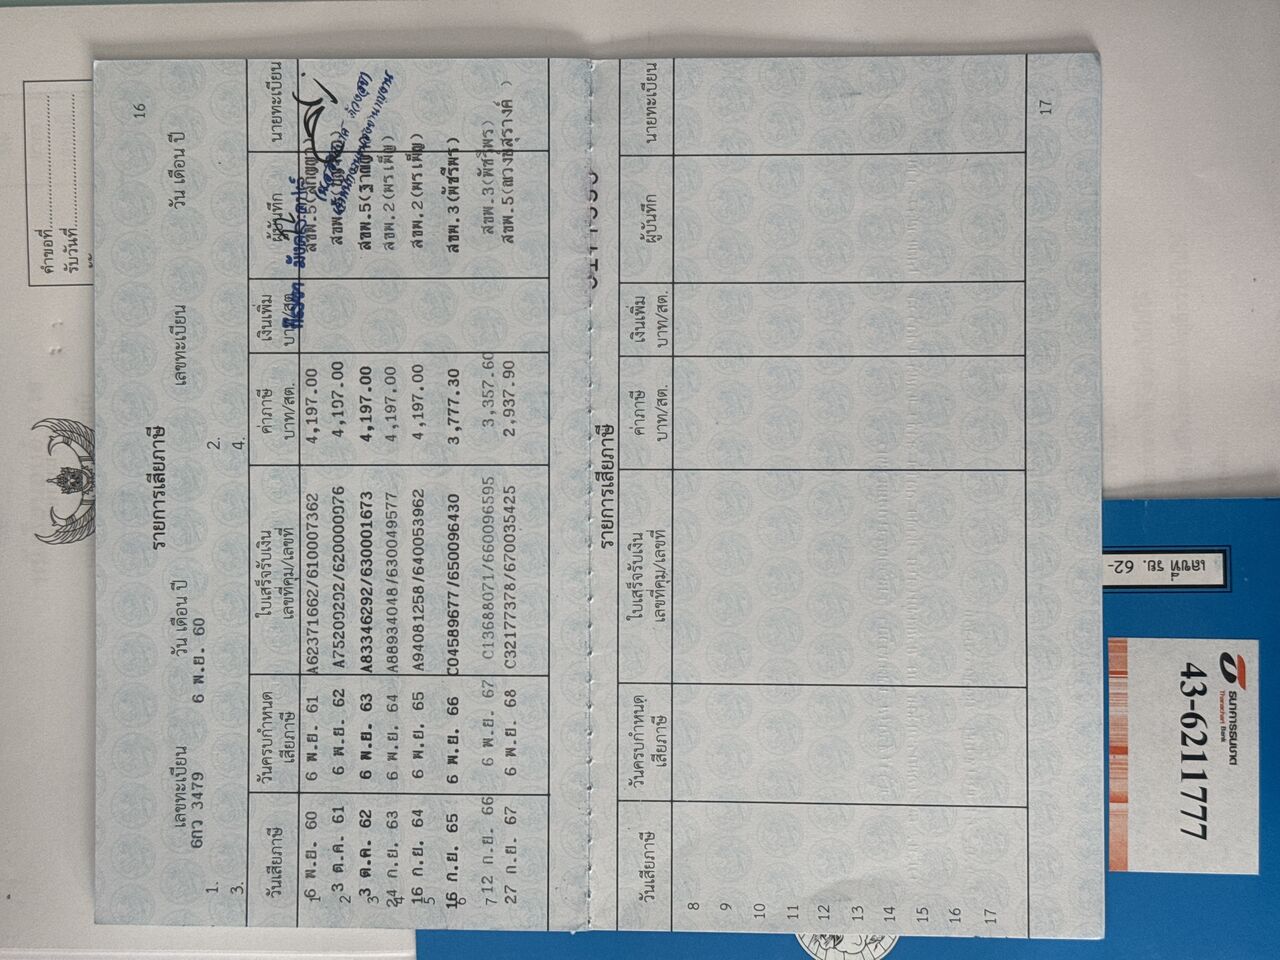 คำขอที่
รับวันที่
16
รายการเสียภาษี
เลขทะเบียน วัน เดือน ปี เลขทะเบียน วัน เดือน ปี
1. 6กว 3479 6 พ.ย. 60 2.
3. 4.
วันเสียภาษี วันครบกำหนดเสียภาษี ใบเสร็จรับเงิน เลขที่คุม/เลขที่ ค่าภาษี บาท/สต. เงินเพิ่ม บาท/สต. ผู้บันทึก นายทะเบียน
1 6 พ.ย. 60 6 พ.ย. 61 A62371662/610007362 4,197.00 สขพ.5
2 3 ต.ค. 61 6 พ.ย. 62 A75200202/620000076 4,197.00 สขพ.
3 3 ต.ค. 62 6 พ.ย. 63 A83346292/630001673 4,197.00 สขพ.5
4 24 ก.ย. 63 6 พ.ย. 64 A88934048/630049577 4,197.00 สขพ.2(พรเพ็ญ)
5 16 ก.ย. 64 6 พ.ย. 65 A94081258/640053962 4,197.00 สขพ.2(พรเพ็ญ)
6 16 ก.ย. 65 6 พ.ย. 66 C04589677/650096430 3,777.30 สขพ.3(พัชรีพร)
7 12 ก.ย. 66 6 พ.ย. 67 C13688071/660096595 3,357.60 สขพ.3(พัชรีพร)
27 ก.ย. 67 6 พ.ย. 68 C32177378/670035425 2,937.90 สขพ.5
รายการเสียภาษี
วันเสียภาษี วันครบกำหนดเสียภาษี ใบเสร็จรับเงิน เลขที่คุม/เลขที่ ค่าภาษี บาท/สต. เงินเพิ่ม บาท/สต. ผู้บันทึก นายทะเบียน
8
9
10
11
12
13
14
15
16
17
17
เลขที่
รย. 62-
ธนาคารธนชาต
Thanachart Bank
43-6211777